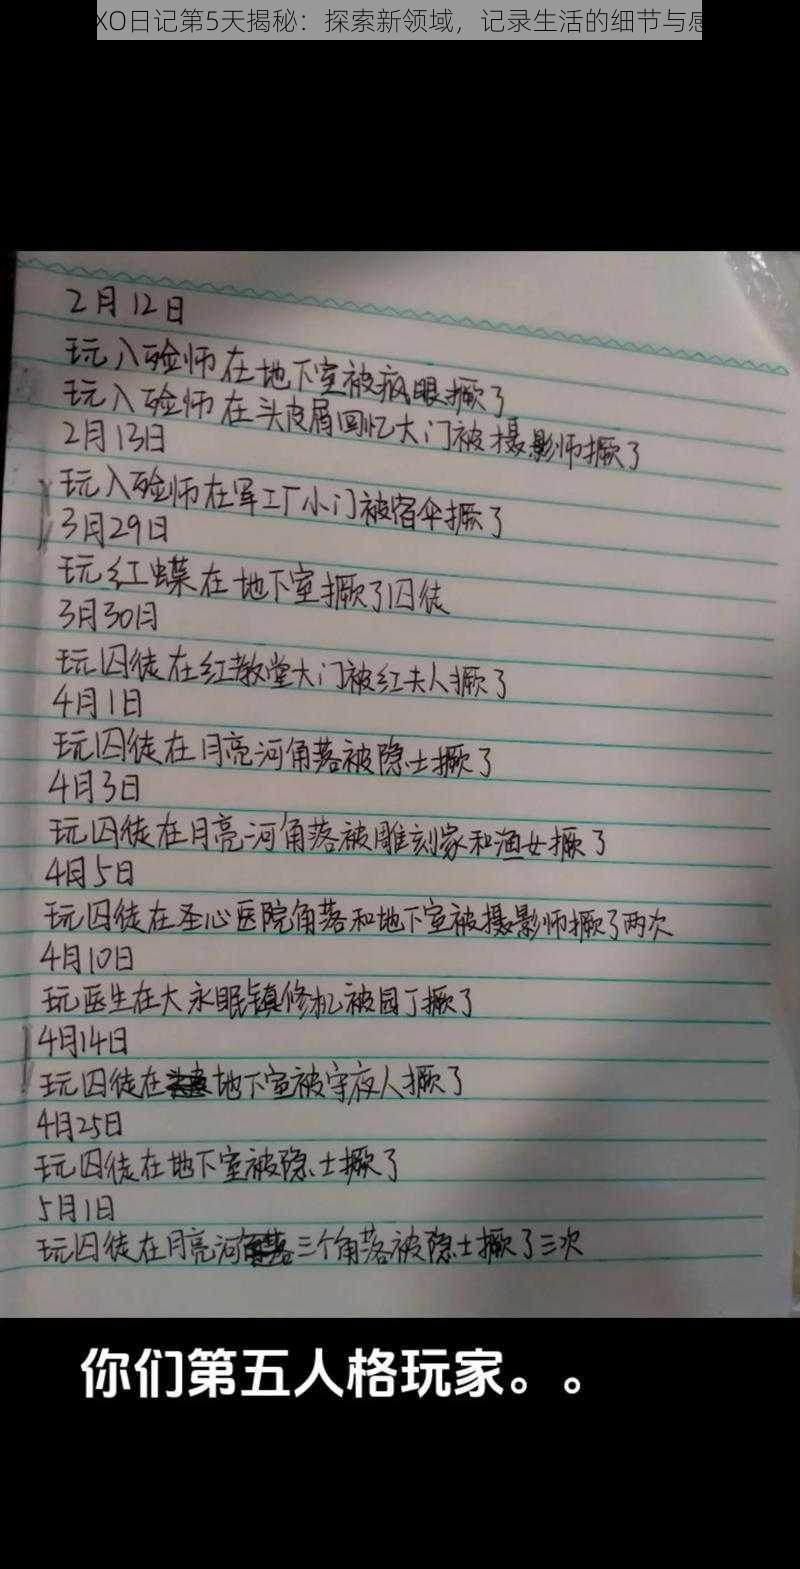 XO日记第5天揭秘：探索新领域，记录生活的细节与感
2月12日
玩入殓师在地下室被疯眼撅了
玩入殓师在头皮屑回忆大门被摄影师撅了
2月13日
玩入殓师在军工厂小门被宿伞撅了
3月29日
玩红蝶在地下室撅了囚徒
3月30日
玩囚徒在红教堂大门被红夫人撅了
4月1日
玩囚徒在月亮河角落被隐士撅了
4月3日
玩囚徒在月亮河角落被雕刻家和渔女撅了
4月5日
玩囚徒在圣心医院角落和地下室被摄影师撅了两次
4月10日
玩医生在大永眠镇修机被园丁撅了
4月14日
玩囚徒在地下室被守夜人撅了
4月25日
玩囚徒在地下室被隐士撅了
5月1日
玩囚徒在月亮河三个角落被隐士撅了三次
你们第五人格玩家。。